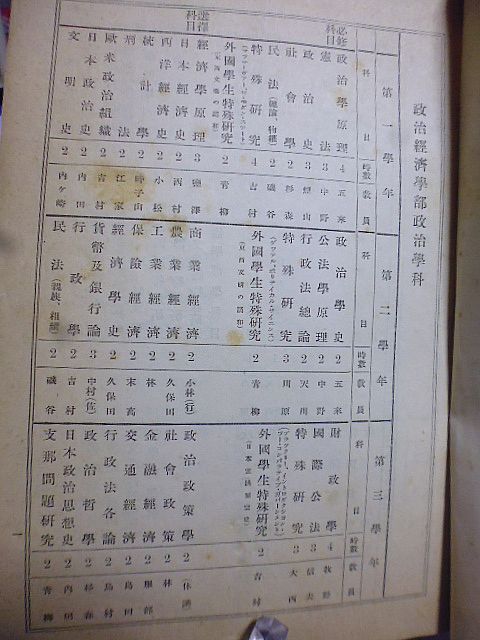 政治經濟學部政治學科
第一學年
科目 時數 敎員
必修科目
政治學原理 4 五來
憲法 3 中野
政治史 3 煙山
社會學 2 杉森
民法(總論、物權) 2 磯谷
特殊研究 4 吉村
外國學生特殊研究 2 青柳
(東西文明の調和)
選擇科目
經濟學原理 3 鹽澤
日本經濟史 2 西村
西洋經濟史 2 小松
統計學 2 時子山
刑法 2 江家
歐米政治組織 2 吉村
日本政治史 2 內田
文明史 2 內ヶ崎
第二學年
科目 時數 敎員
政治學史 2 五來
公法學原理 2 中野
行政法總論 2 天川
特殊研究 3 川原
外國學生特殊研究 2 青柳
(東西文明の調和)
商業經濟 2 小林(行)
農業經濟 2 久保田
工業經濟 2 林
保險經濟 2 末高
經濟學史 2 久保田
貨幣及銀行論 3 中村(佐)
行政學 2 吉村
民法(親族、相續) 2 磯谷
第三學年
科目 時數 敎員
財政學 4 牧野
國際公法 3 信夫
特殊研究 3 大西
外國學生特殊研究 2 吉村
政治政策學 2
社會政策 2 林
金融經濟 2 服部
交通經濟 2 島田
行政法各論 2 島村
政治哲學 2 杉森
日本政治思想史 2 內田
支那問題研究 2 青柳